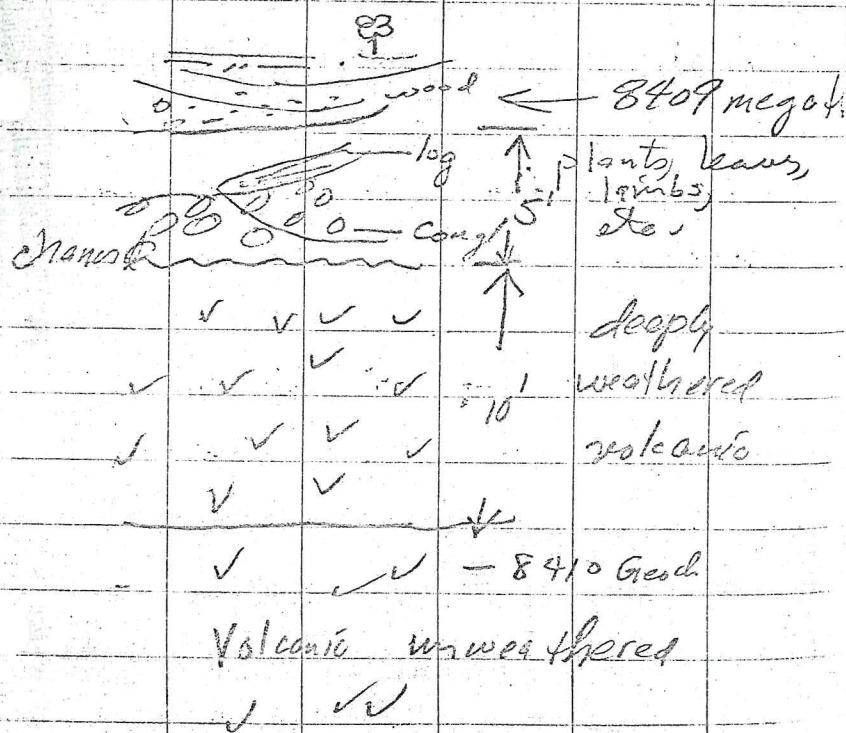 wood ← 8409 megaf.
log
plants, leaves,
limbs,
5'
etc.
Congl
channel
deeply
weathered
10'
volcanic
- 8410 Geoch
Volcanic unweathered